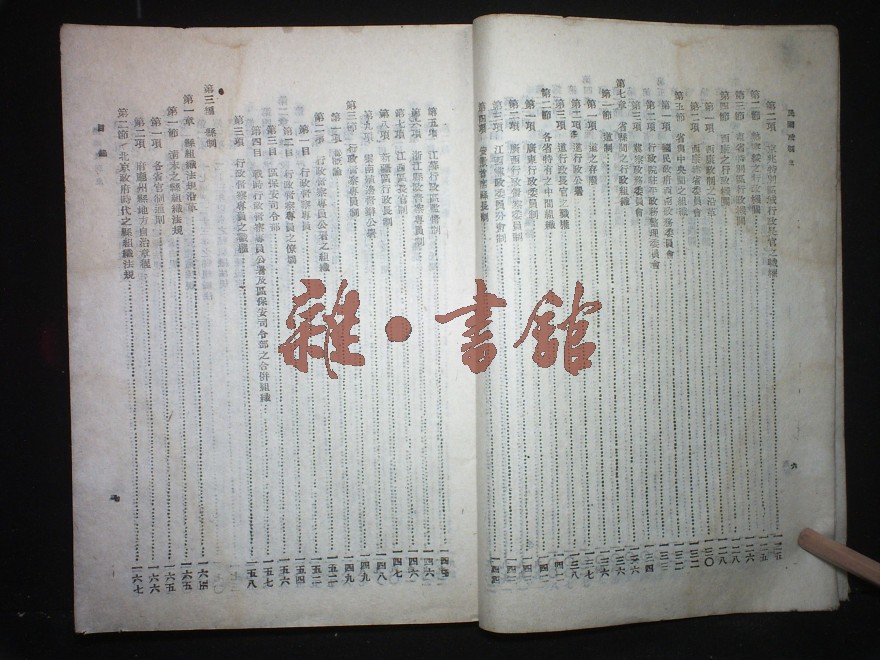 第二項 京兆特別區域行政長官之職權 一二五
第三節
第四節 西康之行政機關 一二八
第一項 西康政制之沿革
第二項 西康建省委員會 一三〇
第五節 省與中央間之組織 一三二
第一項 國民政府西南政務委員會
第二項 行政院駐平政務整理委員會 一三四
第三項 冀察政務委員會 一三六
第七章 省縣間之行政組織
第一節 道制
第一項 道之存廢 一三七
第二項 道行政公署 一三八
第三項 道行政長官之職權
第二節 各省特有之中間組織 一四二
第一項 廣東行政委員制
第二項 廣西行政督察委員制
第三項
第四項 安徽首席縣長制 一四四
第五項 江蘇行政區監督制
第六項 浙江縣政督察專員制 一四六
第七項 江西區長官制 一四七
第八項 新疆區行政長制 一四八
第九項 雲南殖邊督辦公署 一四九
第三節 行政督察專員制 一四九
第一項 概論
第二項 行政督察專員公署之組織 一五二
第一目 行政督察專員 一五四
第二目 行政督察專員之僚屬 一五六
第三目 區保安司令部 一五七
第四目 戰時行政督察專員公署及區保安司令部之合併組織
第三項 行政督察專員之職權 一五八
第三編 縣制
第一章 縣組織法規沿革 一六五
第一節 清末之縣組織法規 一六五
第一項 各省官制通則 一六六
第二項 府廳州縣地方自治章程 一六六
第二節 北京政府時代之縣組織法規 一六七
目錄
六
雜·書館